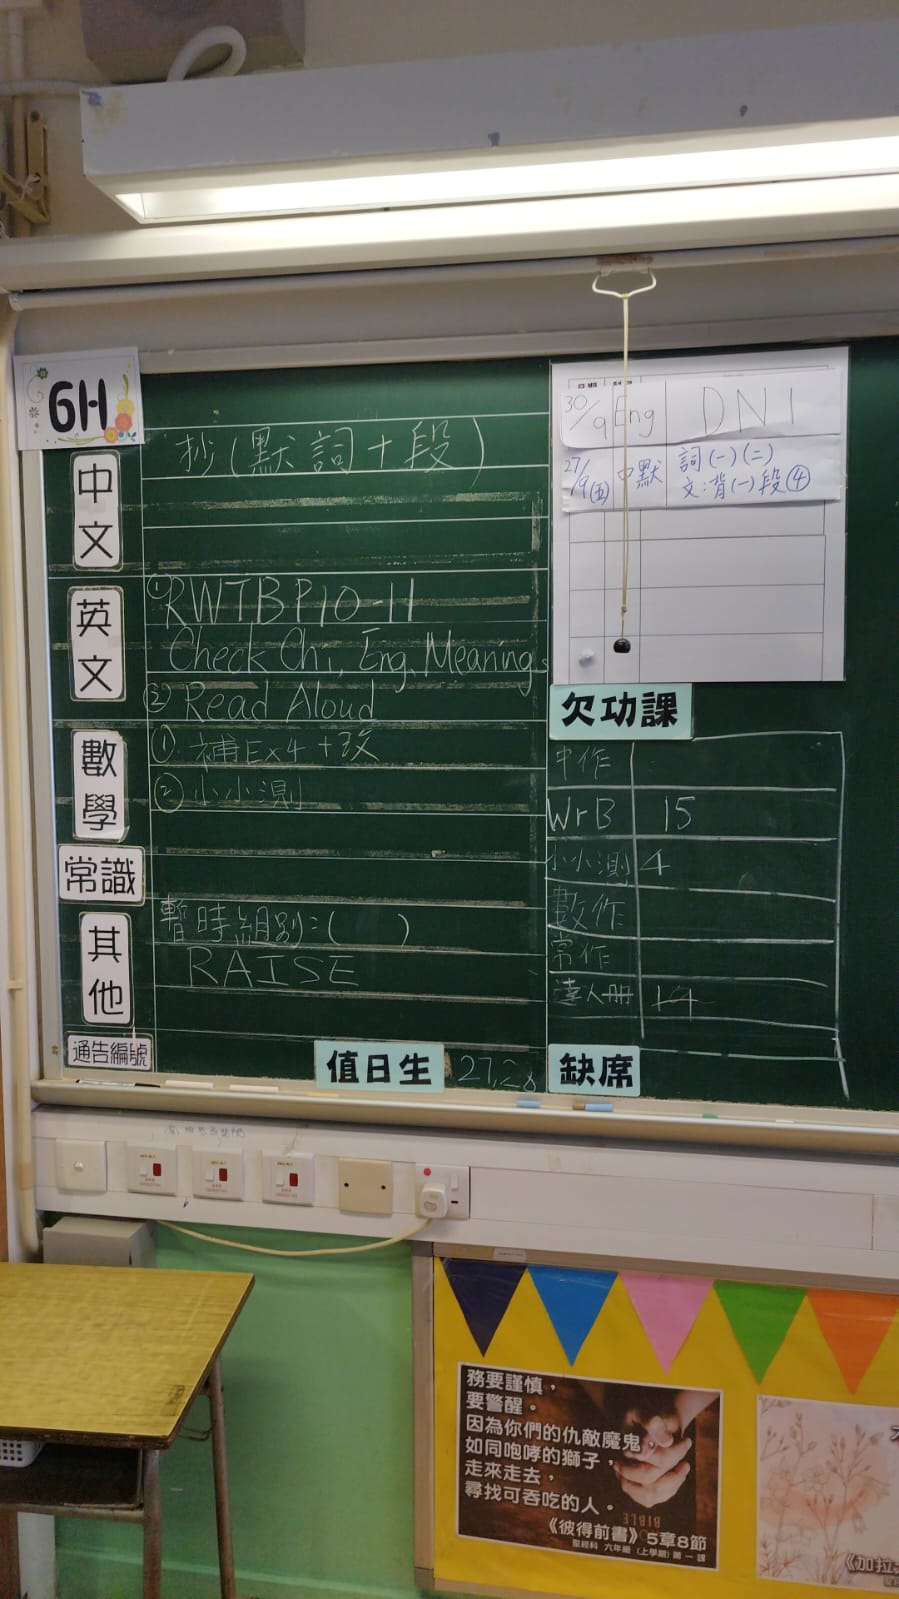 6H
中文
抄(默詞+段)
英文
①RWTBP10-11
Check Chi, Eng. Meanings
② Read Aloud
數學
① 補Ex4 +改
② 小小測
常識
其他
暫時組別:( )
RAISE
通告編號
值日生 27,28
30/9 Eng DN1
27/9(五) 中默 詞(一)(二)
文:背(一)段④
欠功課
中作
WrB 15
小小測 4
數作
常作
達人冊 14
缺席
務要謹慎,
要警醒。
因為你們的仇敵魔鬼,
如同咆哮的獅子,
走來走去,
尋找可吞吃的人。
BIBLE
《彼得前書》5章8節
聖經科 六年級 (上學期) 第一課
《加拉